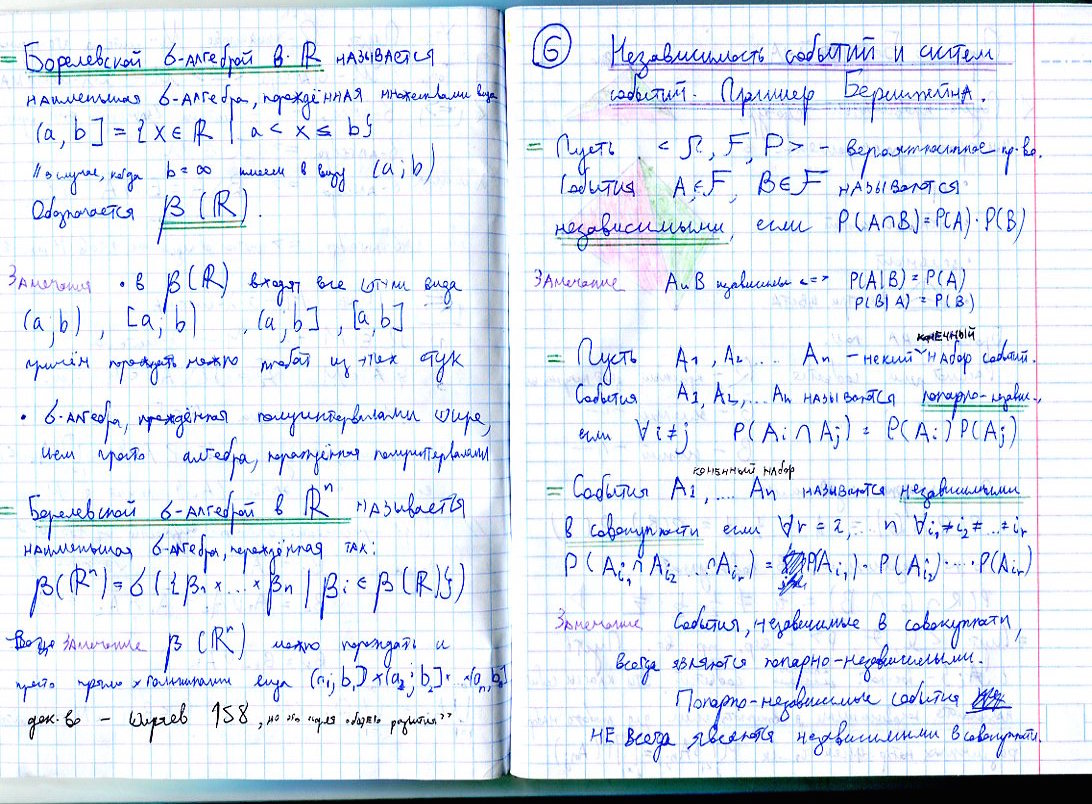 = Борелевской σ-алгеброй в ℝ называется
наименьшая σ-алгебра, порождённая множествами вида
(a, b] = {x ∈ ℝ | a < x ≤ b}
// в случае, когда b = ∞ имеем в виду (a; b)
Обозначается β(ℝ).
Замечания • в β(ℝ) входят все штуки вида
(a; b), [a; b), (a; b], [a, b]
причём порождать можно любой из этих штук
• σ-алгебра, порождённая полуинтервалами шире,
чем просто алгебра, порождённая полуинтервалами
= Борелевской σ-алгеброй в ℝⁿ называется
наименьшая σ-алгебра, порождённая так:
β(ℝⁿ) = σ({β₁ × … × βₙ | βᵢ ∈ β(ℝ)})
Замечание β(ℝⁿ) можно порождать и
просто прямо вида (a₁; b₁] × (a₂; b₂] × … × (aₙ, bₙ]
док-во – Ширяев 158, но это "для общего развития".
6 Независимость событий и систем
событий. Пример Бернштейна.
= Пусть <Ω, F, P> – вероятностное пр-во.
События A ∈ F, B ∈ F называются
независимыми, если P(A∩B) = P(A)·P(B)
Замечание A и B независимы <=> P(A|B) = P(A)
P(B|A) = P(B)
конечный
= Пусть A₁, A₂ … Aₙ – некий набор событий.
События A₁, A₂, … Aₙ называются попарно-незави.,
если ∀i ≠ j P(Aᵢ ∩ Aⱼ) = P(Aᵢ) P(Aⱼ)
конечный набор
= События A₁, … Aₙ называются независимыми
в совокупности если ∀r = 2, … n ∀i₁ ≠ i₂ ≠ … ≠ iᵣ
P(Aᵢ₁ ∩ Aᵢ₂ … ∩ Aᵢᵣ) = P(Aᵢ₁) · P(Aᵢ₂) · … · P(Aᵢᵣ)
Замечание События, независимые в совокупности,
всегда являются попарно-независимыми.
Попарно-независимые события
НЕ всегда являются независимыми в совокупности.